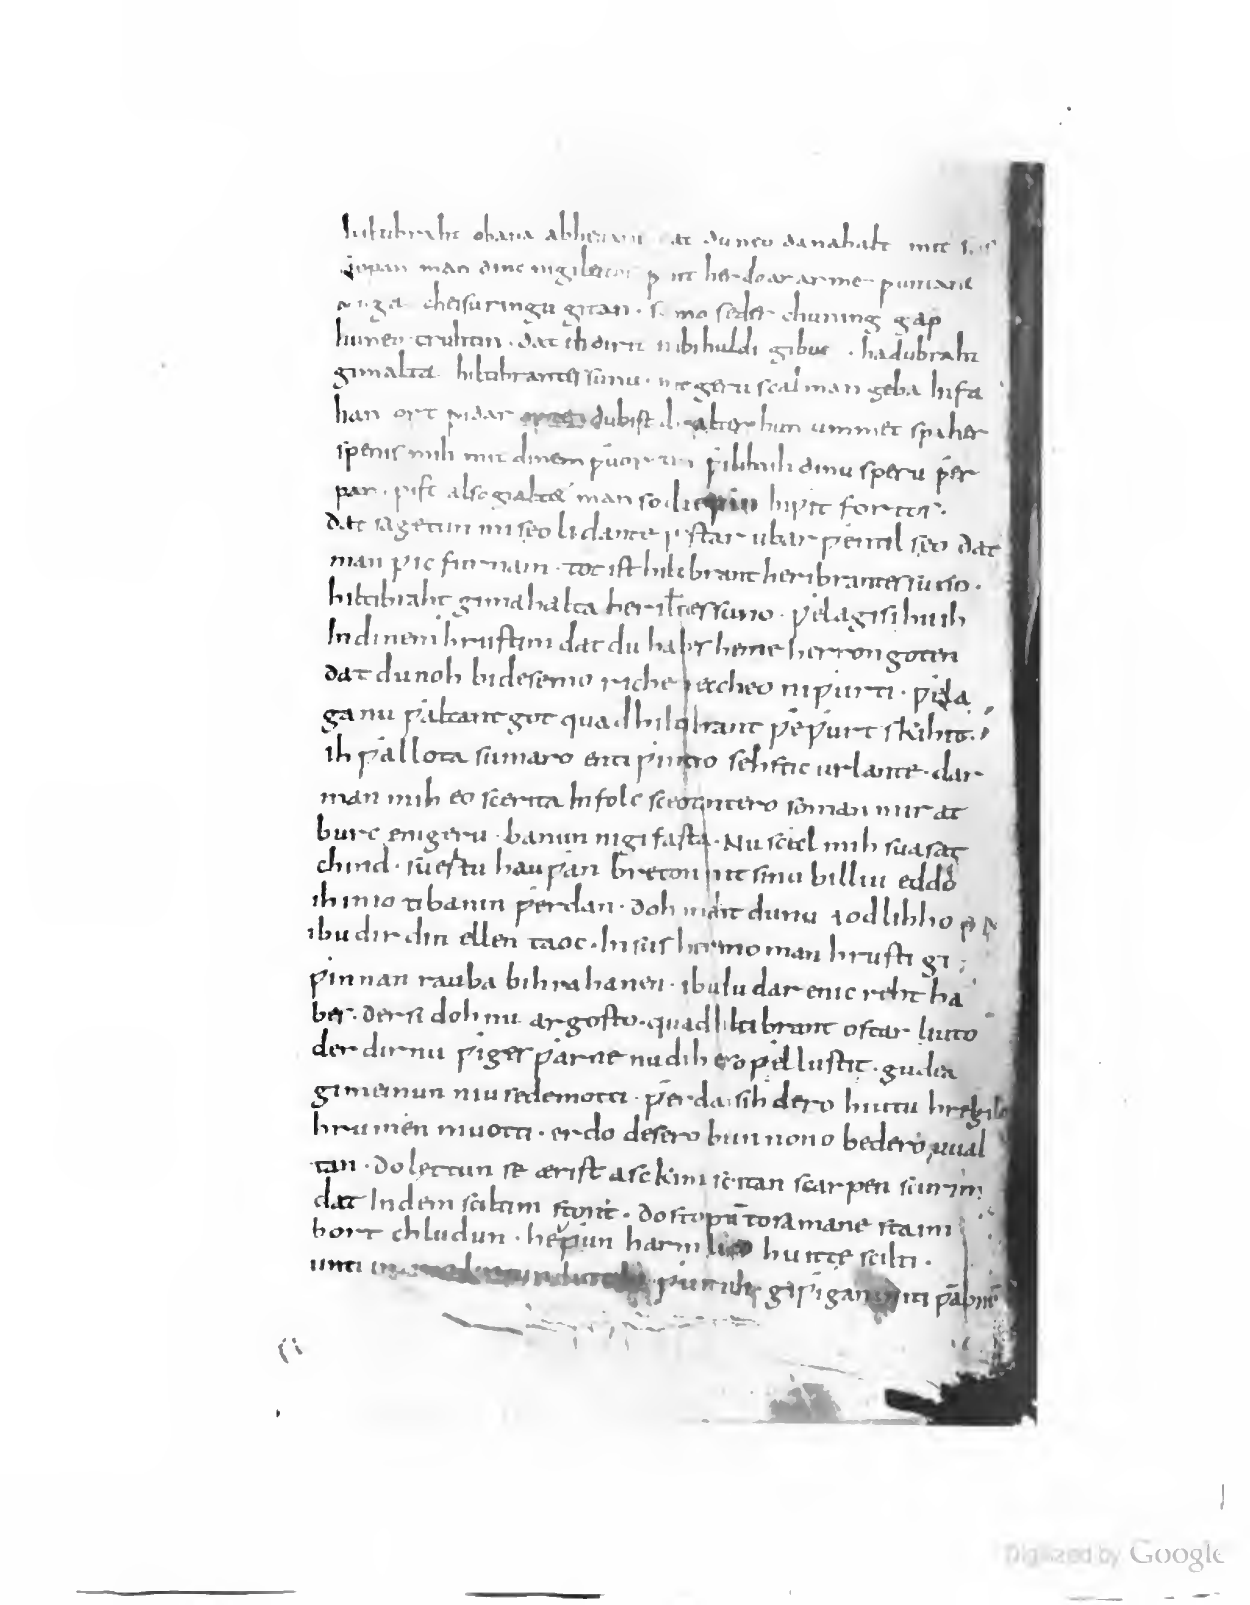 hiltubraht obana abhevane dat du neo danahalt mit sus
sippan man dinc ni gileitos ƿant her do ar arme ƿuntane
bouga cheisuringu gitan · so imo se der chuning gap
huneo truhtin · dat ih dir it nu bi huldi gibu · hadubraht
gimalta hiltibrantes sunu · mit geru scal man geba infa
han ort ƿidar orte du bist dir alter hun ummet spaher
spenis mih mit dinem ƿuortun ƿili mih dinu speru ƿer
pan · pist also gialtet man so du eƿin inƿit fortos ·
dat sagetun mi seolidante ƿestar ubar ƿentilseo dat
man ƿic furnam · tot ist hiltibrant heribrantes suno ·
hiltibraht gimahalta heribtes suno · ƿela gisihu ih
In dinem hrustim dat du habes heme herron goten
dat du noh bi desemo riche reccheo ni ƿurti · ƿela
ga nu ƿaltant got quad hiltibrant ƿeƿurt skihit ·
ih ƿallota sumaro enti ƿintro sehstic ur lante · dar
man mih eo scerita In folc sceotantero so man mir at
burc enigeru · banun ni gifasta · Nu scal mih suasat
chind · suertu hauƿan breton mit sinu billiu eddo
ih imo ti banin ƿerdan · doh maht du nu aodlihho
ibu dir din ellen taoc · In sus heremo man hrusti gi
ƿinnan rauba bihrahanen · ibu du dar enic reht ha
bes · der si doh nu argosto · quad hiltibrant ostarliuto
der dir nu ƿiges ƿarne nu dih es so ƿel lustit · gudea
gimeinun niuse de motti · ƿerdar sih dero hiutu hregilo
hrumen muotti · erdo desero brunnono bedero uual
tan · do lettun se ærist asckim scritan scarpen scurim
dat In dem sciltim stont · do stoptū tosamane staim
bort chludun · heƿun harmlicco huitte scilti ·
unti im iro lintun luttilo ƿurtun giƿigan miti ƿabnū
Digitized by Google